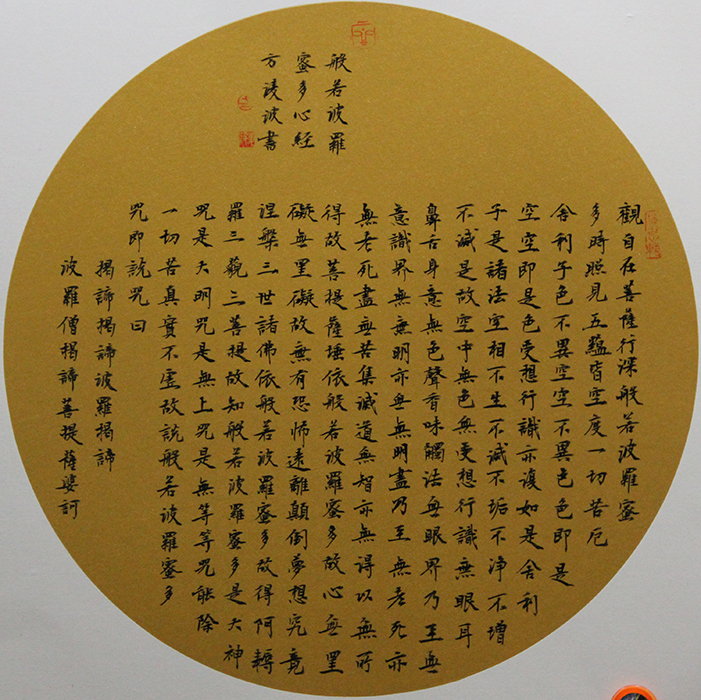 般若波羅
蜜多心經
方淩波書
觀自在菩薩行深般若波羅蜜
多時照見五蘊皆空度一切苦厄
舍利子色不異空空不異色色即是
空空即是色受想行識亦復如是舍利
子是諸法空相不生不滅不垢不浄不增
不減是故空中無色無受想行識無眼耳
鼻舌身意無色聲香味觸法無眼界乃至無
意識界無無明亦無無明盡乃至無老死亦
無老死盡無苦集滅道無智亦無得以無所
得故菩提薩埵依般若波羅蜜多故心無罣
礙無罣礙故無有恐怖遠離顛倒夢想究竟
涅槃三世諸佛依般若波羅蜜多故得阿耨
羅三藐三菩提故知般若波羅蜜多是大神
咒是大明咒是無上咒是無等等咒能除
一切苦真實不虛故說般若波羅蜜多
咒即說咒曰
揭諦揭諦波羅揭諦
波羅僧揭諦菩提薩婆訶